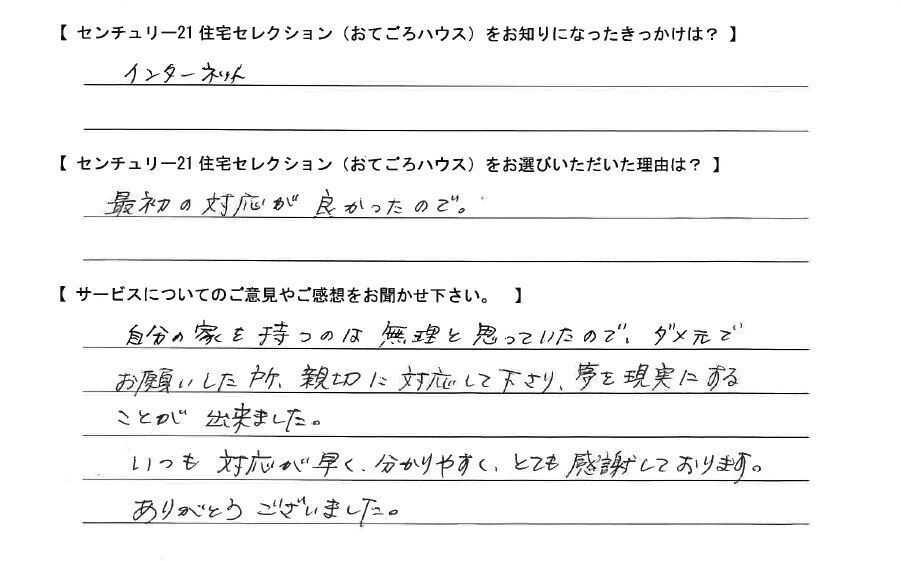 【 センチュリー21 住宅セレクション（おてごろハウス）をお知りになったきっかけは？ 】
インターネット
【 センチュリー21 住宅セレクション（おてごろハウス）をお選びいただいた理由は？ 】
最初の対応が良かったので。
【 サービスについてのご意見やご感想をお聞かせ下さい。 】
自分の家を持つのは無理と思っていたので、ダメ元で
お願いした所、親切に対応して下さり、夢を現実にする
ことが出来ました。
いつも対応が早く、分かりやすく、とても感謝しております。
ありがとうございました。